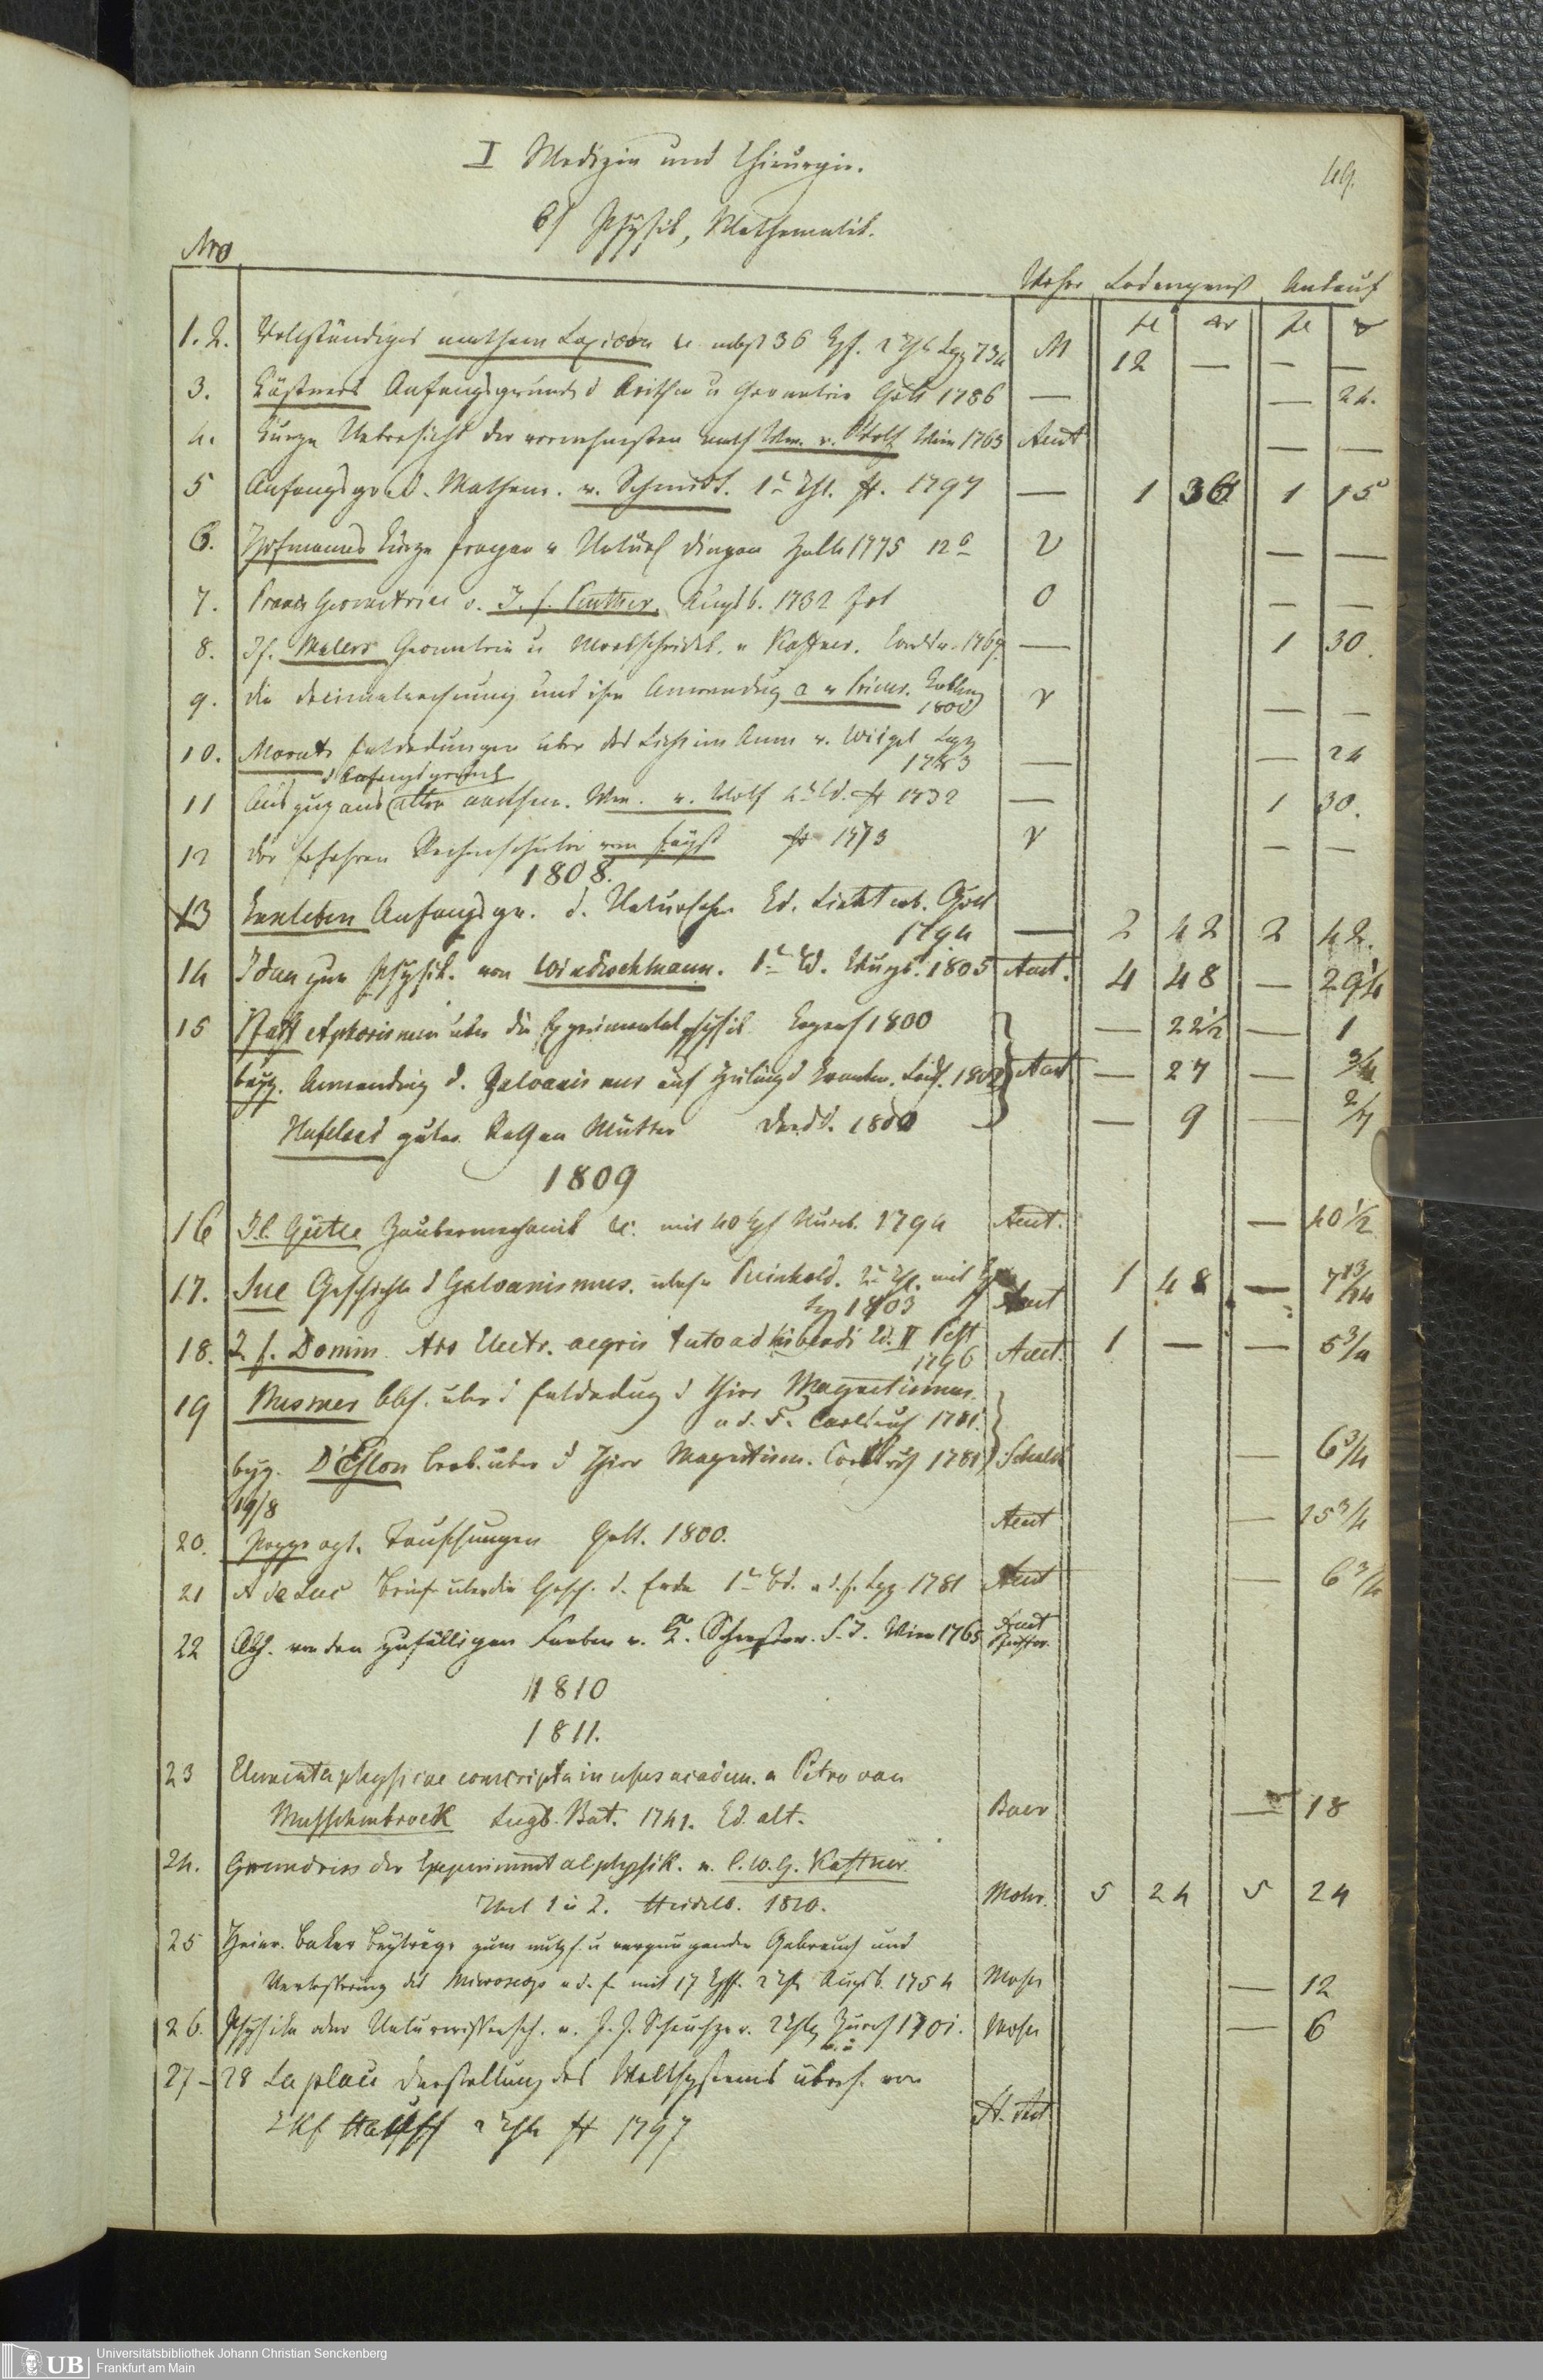 I Medizin und Chirurgie.
49.
6) Physik, Mathematik.
Nro
Woher Ladenpreiß Ankauf
fl xr fl xr
1. 2. Vollständiges mathem Lexicon nebst 36 Kpf. 2 Thle Lpz 734 M 12 — — —
3. Kästners Anfangsgründe d Arithm u Geometrie Gött 1786 — — 24.
4. Kurze Uebersicht der vornehmsten math Wm. v. Wolf Wien 1763 Auct — —
5 Anfangsgr. d. Mathem. v. Schmidt. 1r Thl. ff. 1797 — 1 36 1 15
6. Hofmanns kurze Fragen v Natürl dingen Halle 1775 12° V — —
7. Praxis Geometriae v. J. f. Penther. Augsb. 1732 fol O — —
8. Jh. Malers Geometrie u Markscheidek. v Kastner. Carlsr. 1769. — 1 30.
9. die Decimalrechnung und ihre Anwendung a v Coblenz
1800 V — —
10. Marats Entdeckungen über das Licht im Ann v. Weigel Lpz
1783 — — 24
d Anfangsgründe
11 Auszug aus aller mathem. Wm. v. Wolf ff 1732 — 1 30.
12 der erfahren Rechenschüler von ff 1773 V — —
1808.
13 Erxleben Anfangsgr. d. Naturlehre Ed. Lichtenb. Gött
1794 — 2 42 2 42.
14 Ideen zur Physik. von Windischmann. 1r Bd. Würzb. 1805 Auct. 4 48 — 29¼
15 Pfaff Aphorismen über die Experimentalphysik 1800 — 22½ — 1
beyg. Anwendung d. Galvanismus auf Heilung d Kranken. 1802 Auct — 27 — ¾
Hufelands guter Rath an Mütter 1800 — 9 —
1809
16 Jl. Gütle Zaubermechanik &c. mit 40 Kpf Nürnb. 1794 Auct. — 40½
17. Sue Geschichte d Galvanismus. übers v Reinhold. 2r Thl. mit
Lpz 1803 Auct 1 48 —
18. J. f. Domin Ars Electr. aegris tuto adhibendi Ed. II Pest
1796 Auct. 1 — — 5¾
19 Mesmer Abh. über d Entdeckung d thier Magnetismus.
a. d. F. Carlsruh 1781.
beyg. D'Eslon Beob. über d thier Magnetism. Carlsruh 1781 Schalk — 6¾
19/8
20. Poppe opt. Täuschungen Gott. 1800. Auct — 25¾
21 A de Luc Briefe über die Gesch. d. Erde 1r Bd. a. d. f. Lpz 1781 Auct — 6¾
22 Abh. von den zufälligen Farben v. K. Scherffer. S. J. Wien 1765 Auct
1810
1811.
23 Elementa physicae conscripta in usus academ. a Petro van
Musschenbroeck Lugd. Bat. 1741. Ed. alt. Baer — 18
24. Grundriss der Experimentalphysik. v. C. W. G. Kastner.
Theil 1 u 2. Heidelb. 1810. Mohr. 5 24 5 24
25 Heinr. Baker Beyträge zum nützl. u vergnügenden Gebrauch und
Verbesserung des Microscops a. d. f. mit 17 Kpff. 2 Thle Augsb. 1754 Moser — 12
26. Physika oder Naturwissensch. v. J. J. Scheuchzer. 2 Thle Zürich 1701. Moser — 6
27–28 La place Darstellung des Weltsystems übers. von
Hauff 2 Thle ff 1797
Universitätsbibliothek Johann Christian Senckenberg
Frankfurt am Main
UB